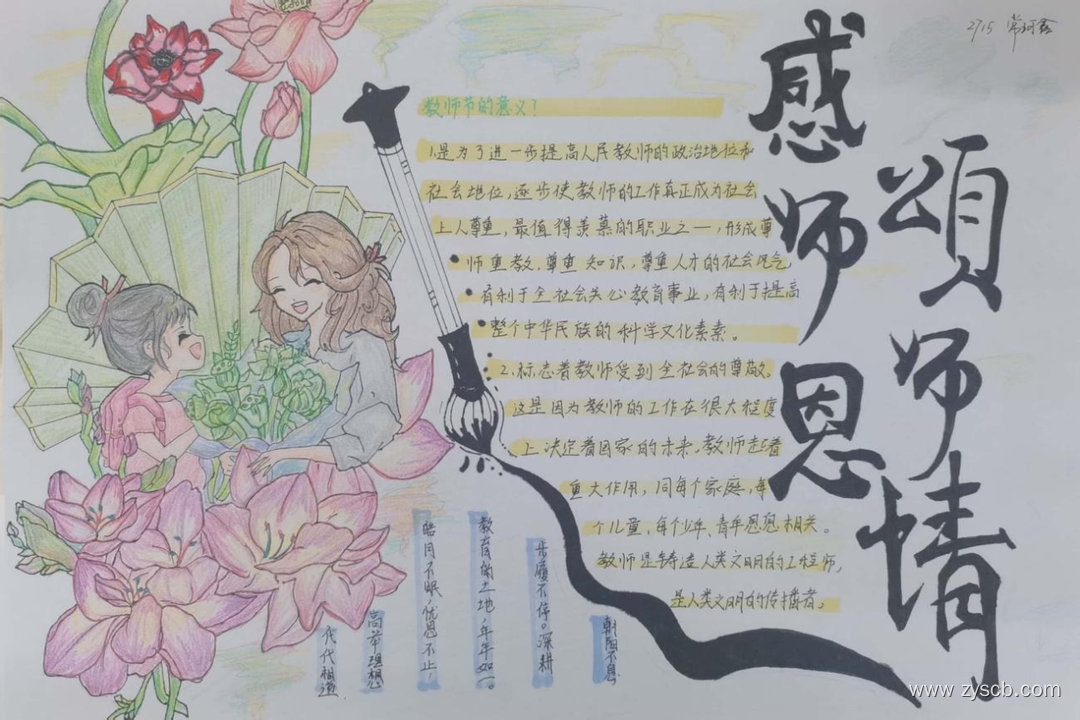 2715 常珂鑫
感师恩
頌师情
教师节的意义？
1.是为了进一步提高人民教师的政治地位和
社会地位,逐步使教师的工作真正成为社会
上人尊重,最值得羡慕的职业之一,形成尊
师重教,尊重知识,尊重人才的社会风气,
有利于全社会关心教育事业,有利于提高
整个中华民族的科学文化素素。
2.标志着教师受到全社会的尊敬。
这是因为教师的工作在很大程度
上决定着国家的未来,教师起着
重大作用,同每个家庭,每
个儿童,每个少年、青年息息相关。
教师是铸造人类文明的工程师,
是人类文明的传播者,
朝阳不息
步履不停。深耕
教育的土地,年年如一。
皓月不眠,忧思不止,
高举理想
代代相递
www.zyscb.com